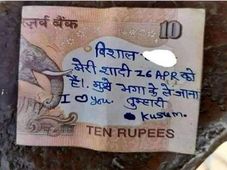 रिज़र्व बैंक
10
विशाल
मेरी शादी 26 APR को
है। मुझे भगा के ले जाना
I ♡ you. तुम्हारी
Kusum.
TEN RUPEES